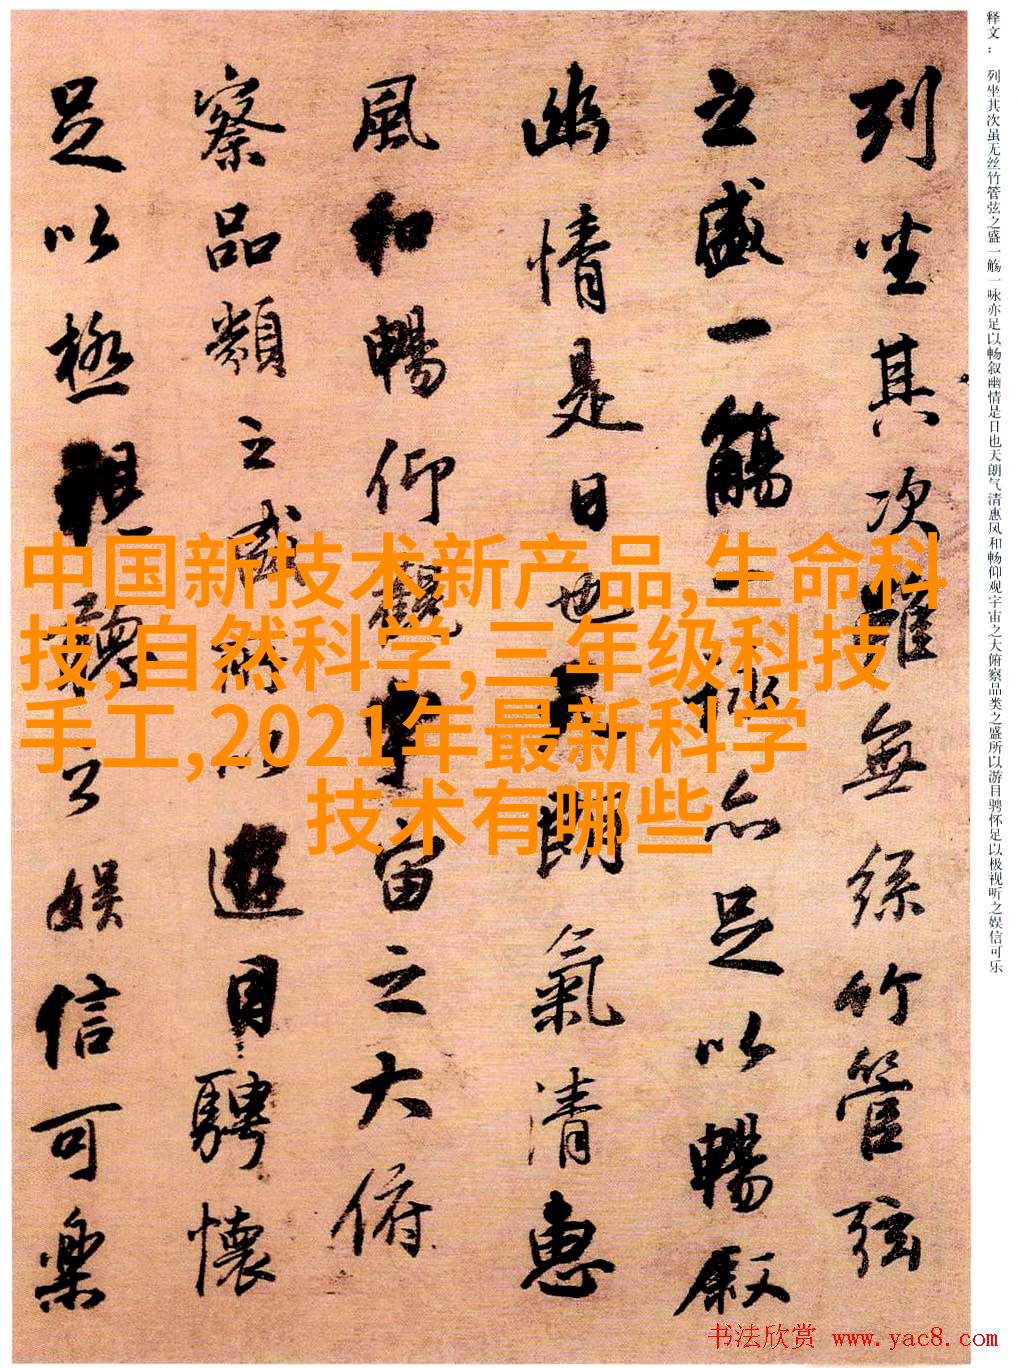 释文：列坐其次虽无丝竹管弦之盛一觞一咏亦足以畅叙幽情是日也天朗气清惠风和畅仰观宇宙之大俯察品类之盛所以游目骋怀足以极视听之娱信可乐
列坐其次雖無絲竹管弦
之盛一觴一詠亦足以暢叙
幽情是日也天朗氣清惠
風和暢仰觀宇宙之大俯
察品類之盛所以遊目騁懷
足以極視聽之娱信可樂
中国新技术新产品,生命科
技,自然科学,三年级科技
手工,2021年最新科学
技术有哪些
书法欣赏 www.yac8.com